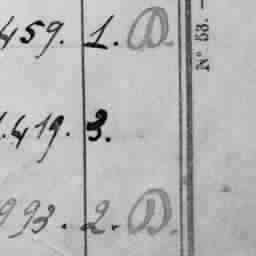 459. 1. D.
1.419. 3.
993. 2. D.
N° 53. —